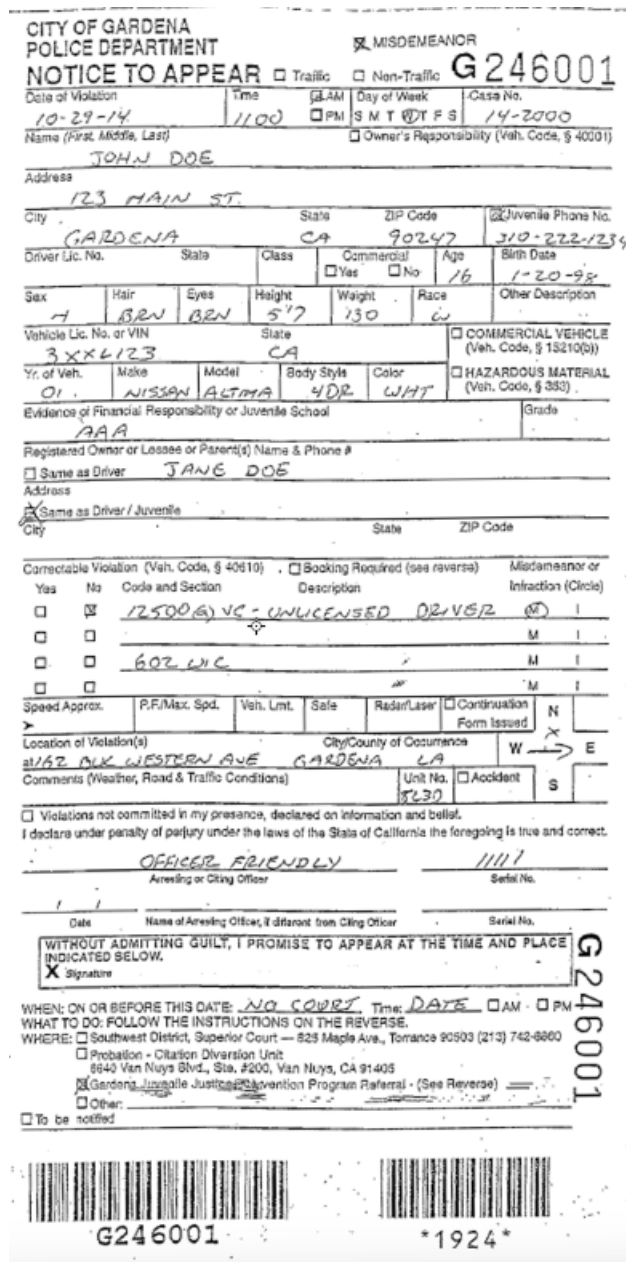 CITY OF GARDENA
POLICE DEPARTMENT
MISDEMEANOR
NOTICE TO APPEAR Traffic Non-Traffic G246001
Date of Violation Time AM Day of Week Case No.
10-29-14 1100 PM S M T W T F S 14-2000
Name (First, Middle, Last) Owner's Responsibility (Veh. Code, § 40001)
JOHN DOE
Address
123 MAIN ST.
City State ZIP Code Juvenile Phone No.
GARDENA CA 90247 310-222-1234
Driver Lic. No. State Class Commercial Age Birth Date
Yes No 16 1-20-98
Sex Hair Eyes Height Weight Race Other Description
BRN BRN 5'7 130 W
Vehicle Lic. No. or VIN State COMMERCIAL VEHICLE
3XXL123 CA (Veh. Code, § 15210(b))
Yr. of Veh. Make Model Body Style Color HAZARDOUS MATERIAL
01 NISSAN ALTIMA 4DR WHT (Veh. Code, § 353)
Evidence of Financial Responsibility or Juvenile School Grade
AAA
Registered Owner or Lessee or Parent(s) Name & Phone #
Same as Driver JANE DOE
Address
Same as Driver / Juvenile
City State ZIP Code
Correctable Violation (Veh. Code, § 40610) Booking Required (see reverse) Misdemeanor or
Yes No Code and Section Description Infraction (Circle)
12500(a) VC - UNLICENSED DRIVER M I
M I
602 WIC M I
M I
Speed Approx. P.F./Max. Spd. Veh. Lmt. Safe Radar/Laser Continuation
Form Issued N
Location of Violation(s) City/County of Occurrence W E
at 162 BLK WESTERN AVE GARDENA LA
Comments (Weather, Road & Traffic Conditions) Unit No. Accident S
5L30
Violations not committed in my presence, declared on information and belief.
I declare under penalty of perjury under the laws of the State of California the foregoing is true and correct.
OFFICER FRIENDLY 11117
Arresting or Citing Officer Serial No.
/ /
Date Name of Arresting Officer, if different from Citing Officer Serial No.
WITHOUT ADMITTING GUILT, I PROMISE TO APPEAR AT THE TIME AND PLACE
INDICATED BELOW.
X Signature
G246001
WHEN: ON OR BEFORE THIS DATE: NO COURT Time: DATE AM PM
WHAT TO DO: FOLLOW THE INSTRUCTIONS ON THE REVERSE.
WHERE: Southwest District, Superior Court — 825 Maple Ave., Torrance 90503 (213) 742-6660
Probation - Citation Diversion Unit
6640 Van Nuys Blvd., Ste. #200, Van Nuys, CA 91405
Gardena Juvenile Justice Intervention Program Referral - (See Reverse)
Other:
To be notified
G246001
*1924*